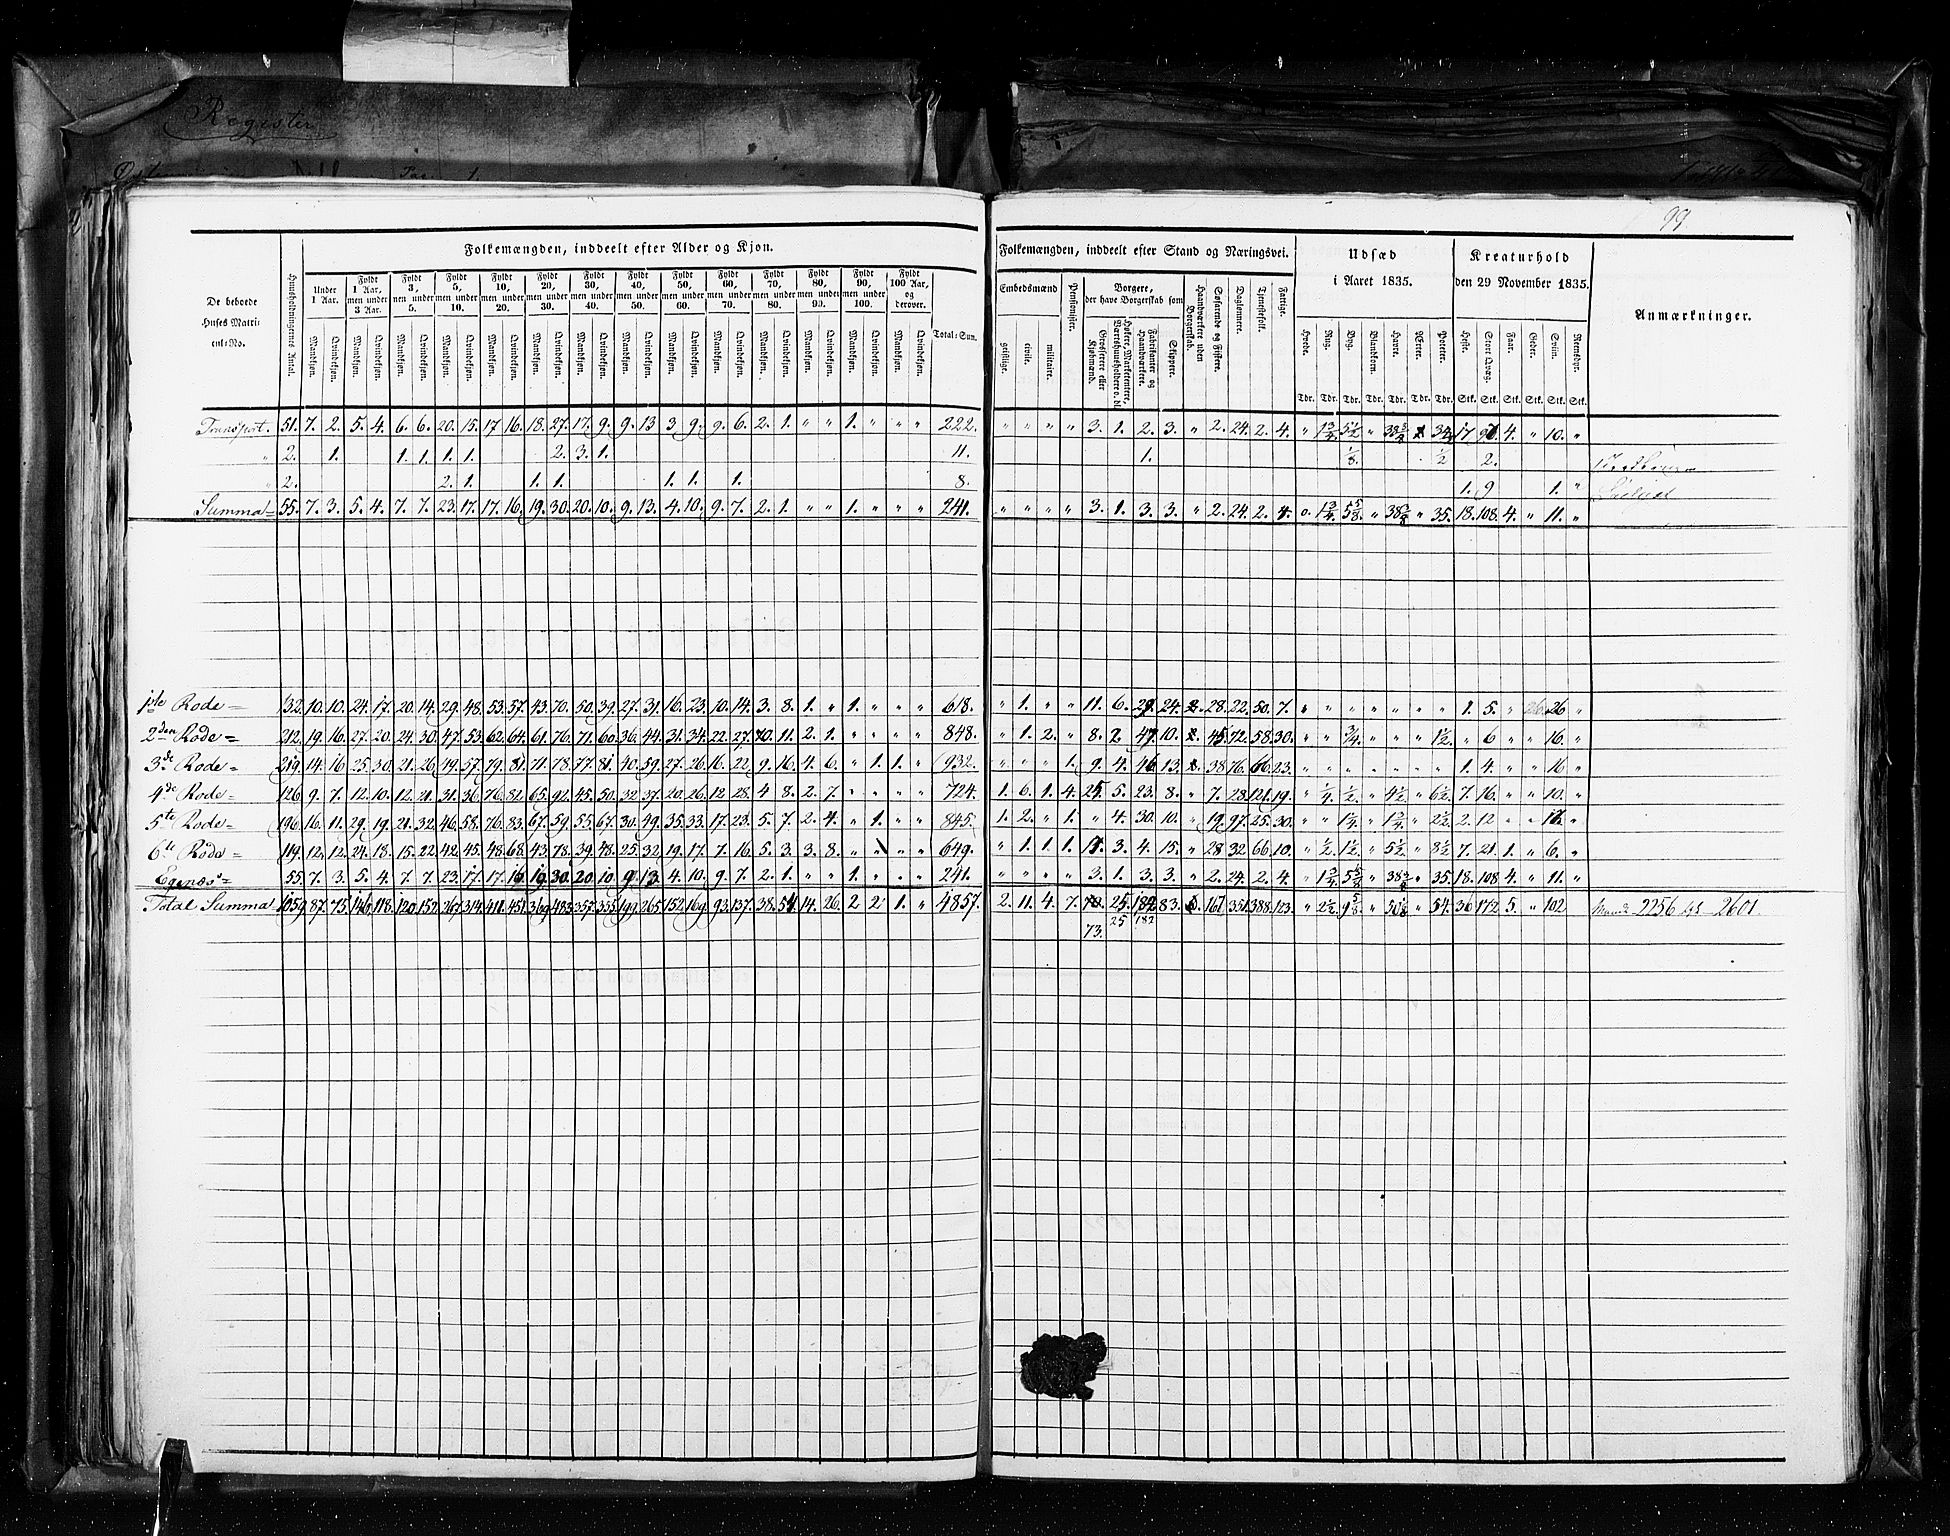 Register
99
Folkemængden, inddeelt efter Alder og Kjøn.
De beboede Huses Matricul-No.
Huusholdningernes Antal.
Under 1 Aar.
Fyldt 1 Aar, men under 3 Aar.
Fyldt 3, men under 5.
Fyldt 5, men under 10.
Fyldt 10, men under 20.
Fyldt 20, men under 30.
Fyldt 30, men under 40.
Fyldt 40, men under 50.
Fyldt 50, men under 60.
Fyldt 60, men under 70.
Fyldt 70, men under 80.
Fyldt 80, men under 90.
Fyldt 90, men under 100.
Fyldt 100 Aar, og derover.
Total-Sum.
Mandkjøn. Qvindekjøn.
Folkemængden, inddeelt efter Stand og Næringsvei.
Embedsmænd
geistlige. civile. militaire.
Pensionister.
Borgere, der have Borgerskab som
Grosserere eller Kjøbmænd.
Høkere, Marketentere, Værtshuusholdere o. dl.
Fabrikanter og Haandværkere.
Skippere.
Haandværkere uden Borgerskab.
Søfarende og Fiskere.
Daglønnere.
Tjenestefolk.
Fattige.
Udsæd i Aaret 1835.
Hvede. Rug. Byg. Blandkorn. Havre. Erter. Poteter.
Tdr. Tdr. Tdr. Tdr. Tdr. Tdr. Tdr.
Kreaturhold den 29 November 1835.
Heste. Stort Qvæg. Faar. Geder. Sviin. Rensdyr.
Stk. Stk. Stk. Stk. Stk. Stk.
Anmærkninger.
Transport. 51. 7. 2. 5. 4. 6. 6. 20. 15. 17 16. 18. 27. 17. 9. 9. 13 3 9. 9. 6. 2. 1. " " 1. " " " 222. " " " " 3. 1. 2. 3. " 2. 24. 2. 4. " 1¾ 5½ " 17 4. " 10. "
" 2. 1. 1. 1. 1. 1. 2. 3. 1. 11. 1. ⅛. ½ 2.
" 2. 2. 1. 1. 1. 1. 1. 1. 8. 1. 9 1. "
Summa 55. 7. 3. 5. 4. 7. 7. 23. 17. 17. 16. 19. 30. 20. 10. 9. 13. 4. 10. 9. 7. 2. 1. " " 1. " " " 241. " " " " 3. 1. 3. 3. " 2. 24. 2. 4. 1¾ 5⅝ " 38⅜ " 35. 18. 108. 4. " 11. "
1ste Rode 132. 10. 10. 24. 17. 20. 14. 29. 48. 53. 57. 43. 70. 50. 39. 27. 31. 16. 23. 10. 14. 3. 8. 1. " 1. " " " 618. " 1. " " 11. 6. 29. 24. 28. 22. 50. 7. " " " " " " " 1. 5. " 26. 26 "
2den Rode 212. 19. 16. 27. 20. 24. 30. 47. 53. 62. 64. 61. 76. 71. 60. 36. 44. 31. 34. 22. 27. 10. 11. 2. 1. " " " " 848. " 1. 2. " 8. 2. 47. 10. 45. 72. 58. 30. " " ¾ " " " 1½ " 6 " " 16. "
3de Rode 219. 14. 16 25. 30. 21. 26. 49. 57. 79. 81. 71. 78. 77. 81. 40. 59. 27. 26. 16. 22. 9. 16. 4. 6. " 1. 1. " 932. " " " 1. 9. 4. 46. 13. 38 76. 66. 23. " " " " " " " 1. 4. " " 16 "
4de Rode 126 9. 7. 12. 10. 12. 21. 31. 36. 76. 82. 65. 92. 45. 50. 32 37. 20. 26. 12 28. 4 8. 2. 7. " " " " 724. 1. 6. 1. 4. 25. 5. 23. 8. " 7. 28. 121. 19. " ¼ ½ " 4½ " 6½ 7. 16. " " 10. "
5te Rode 196. 16. 11. 29. 19. 21. 32. 46. 58. 76. 83. 67. 59. 55. 67. 30. 49. 35. 33. 17. 23. 5. 7. 2. 4. " 1. " " 845. 1. 2. " 1. " 4. 30. 10. " 19. 97. 25. 30. " " 1¼ " 1¾ " 2½ 2. 12 " " "
6te Rode 119. 12. 12. 24. 18. 15. 22. 42. 45. 48. 68. 43. 78. 39. 48. 25. 32 19. 17. 7. 16. 5. 3. 3. 8. " " " 649. " 1. 1. 1. 3. 4. 15. " 28 32 66. 10. " ½ 1½ " 5½ " 8½ 7. 21. 1. " 6. "
Egenæs 55. 7. 3. 5. 4. 7. 7. 23. 17. 17. 16. 19. 30. 20. 10. 9. 13. 4. 10. 9. 7. 2. 1. " " 1. " " " 241. " " " " 3. 1. 3. 3. " 2. 24. 2. 4. " 1¾ 5⅝ " 38⅜ " 35. 18. 108 4. " 11. "
Total Summa 1059. 87. 75. 146. 118. 120. 152. 267. 314. 411. 451. 369. 483. 357. 355. 199. 265. 152 169. 93. 137. 38. 54. 14. 26. 2 2. 1. " 4857. 2. 11. 4. 7. 25. 182. 83. 167. 351. 388. 123. " 2½. 9⅝ " " 54. 36 172 5. " 102 2256 2601.
73. 25 182